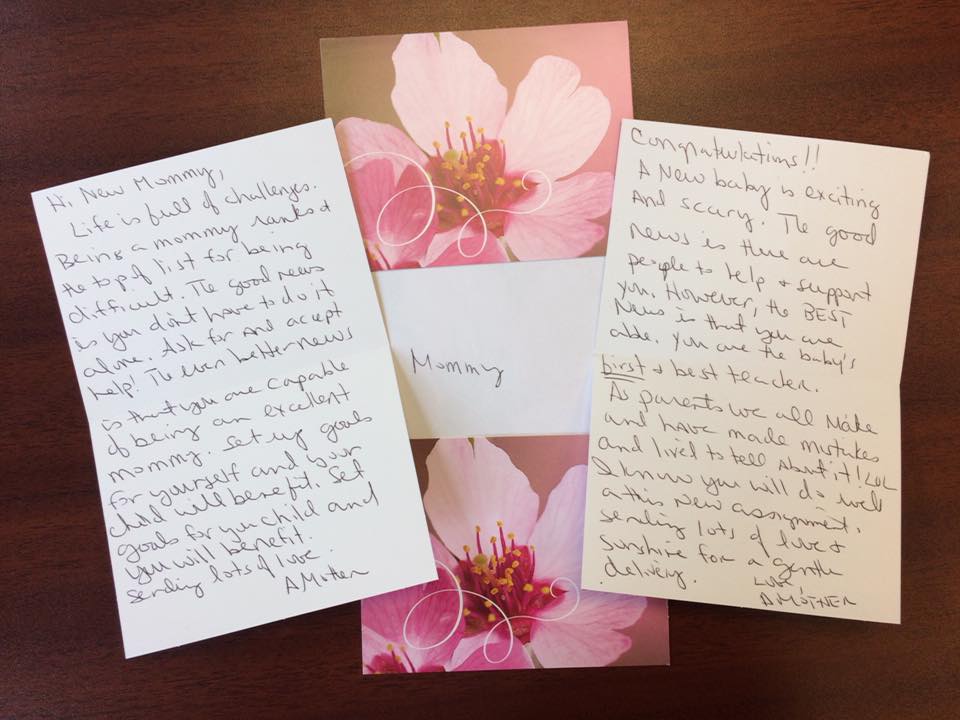 Hi, New Mommy,
Life is full of challenges.
Being a mommy ranks @
the top of list for being
difficult. The good news
is you don't have to do it
alone. Ask for and accept
help! The even better news
is that you are capable
of being an excellent
mommy. Set up goals
for yourself and your
child will benefit. Set
goals for you child and
you will benefit.
Sending lots of love.
A Mother
Mommy
Congratulations!!
A New baby is exciting
And scary. The good
news is there are
people to help & support
you. However, the BEST
News is that you are
able. You are the baby's
first & best teacher.
As parents we all make
and have made mistakes
and lived to tell About it! LOL
I know you will do well
@ this new assignment.
Sending lots of love &
Sunshine for a gentle
delivery.
Love,
A MOTHER